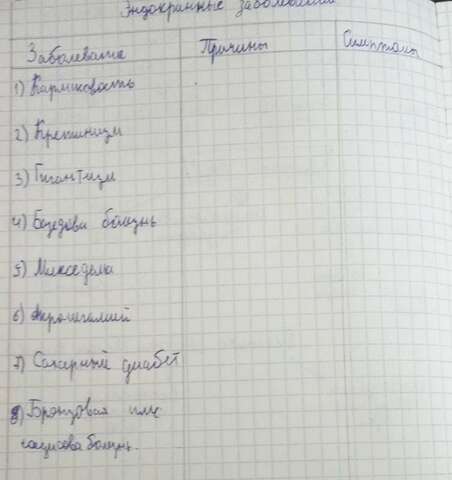 Эндокринные заболевания
Заболевания Причины Симптомы
1) Карликовость
2) Кретинизм
3) Гигантизм
4) Базедова болезнь
5) Микседема
6) Акромегалия
7) Сахарный диабет
8) Бронзовая или
болезнь.